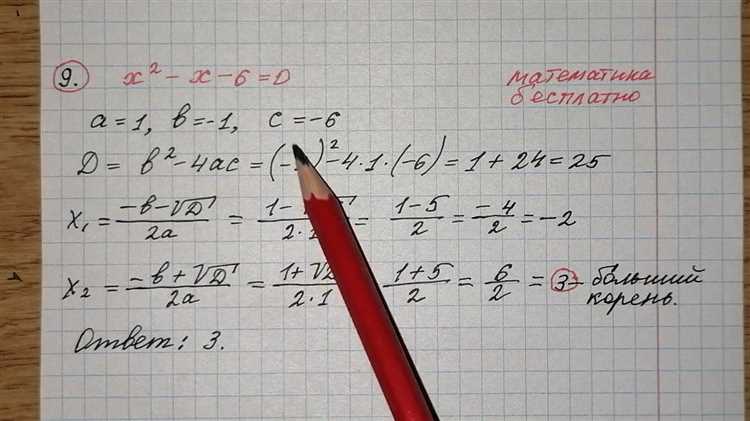 9. x² - x - 6 = 0
математика
бесплатно
a = 1, b = -1, c = -6
D = b² - 4ac = (- )² - 4·1·(-6) = 1 + 24 = 25
x₁ = (-b - √D)/2a = (1 - )/(2· ) = (1 - 5)/2 = -4/2 = -2
x₂ = (-b + √D)/2a = (1 + √)/(2·1) (1 + 5)/2 = 6/2 = 3 - больший
корень.
Ответ: 3.